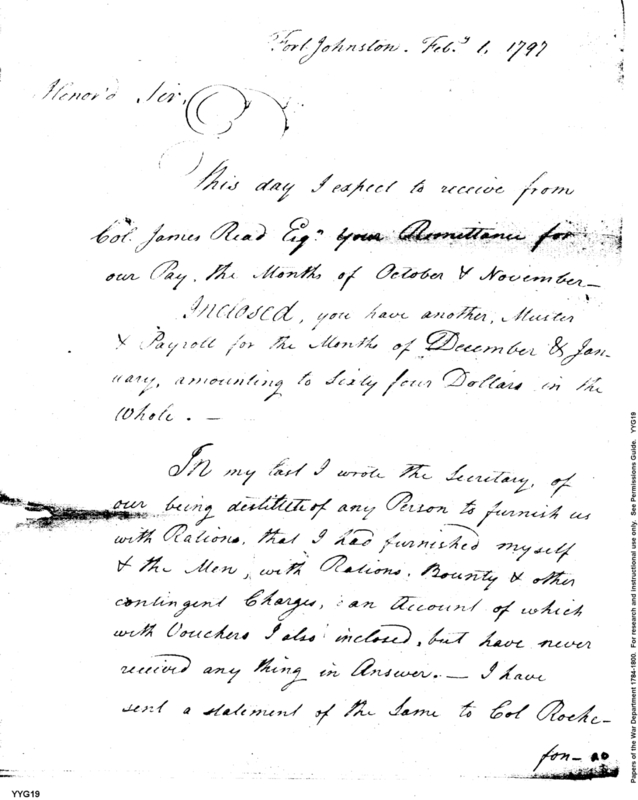 Fort Johnston. Feb.y 1, 1797
Honor'd Sir,
This day I expect to receive from
Col. James Read Esqr. your Remittance for
our Pay, the Months of October & November—
Inclosed, you have another, Muster
& Payroll for the Months of December & Jan-
uary, amounting to Sixty four Dollars in the
Whole. —
In my last I wrote the Secretary, of
our being destitute of any Person to furnish us
with Rations, that I had furnished myself
& the Men, with Rations, Bounty & other
contingent Charges, an Account of which
with Vouchers I also inclosed, but have never
received any thing in Answer. — I have
sent a statement of the Same to Col Roche-
fon— as
YYG19
Papers of the War Department 1784-1800. For research and instructional use only. See Permissions Guide. YYG19